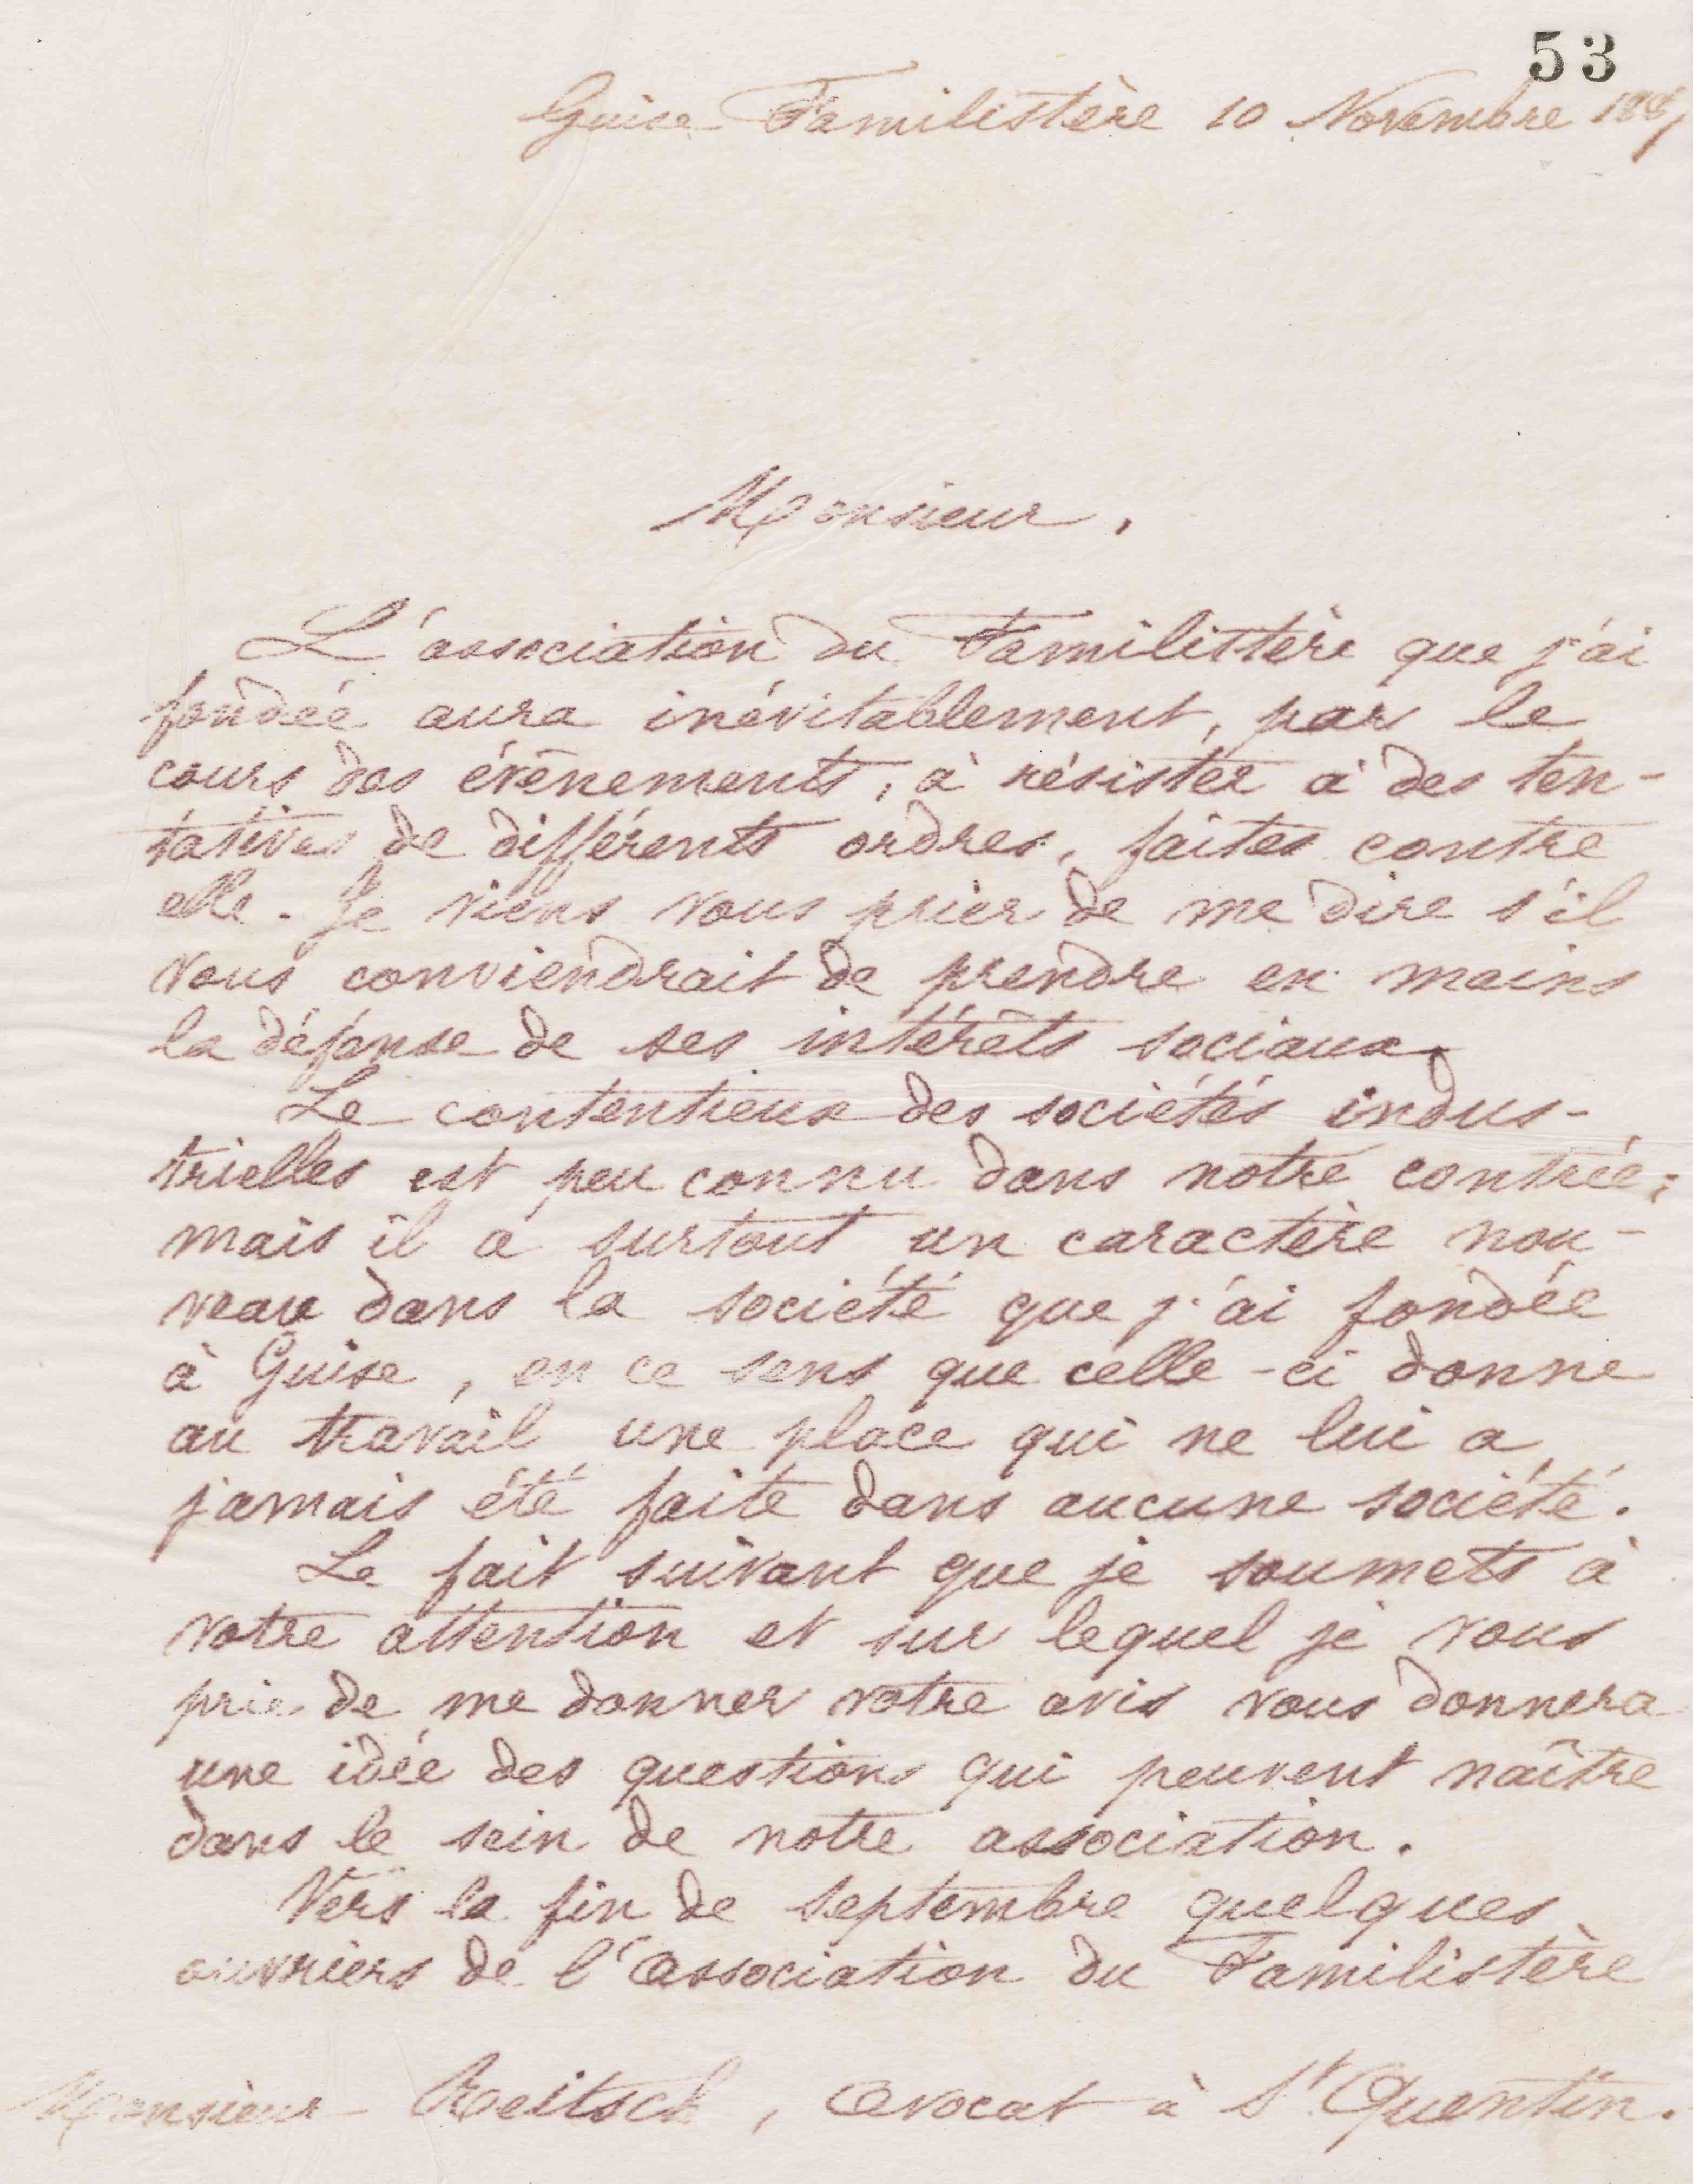 53
Guise Familistère 10 Novembre
Monsieur,
L'association du Familistère que j'ai
fondée aura inévitablement, par le
cours des événements, à résister à des ten-
tatives de différents ordres, faites contre
elle. Je viens vous prier de me dire s'il
vous conviendrait de prendre en mains
la défense de ses intérêts sociaux.
Le contentieux des sociétés indus-
trielles est peu connu dans notre contrée;
mais il a surtout un caractère nou-
veau dans la société que j'ai fondée
à Guise, en ce sens que celle-ci donne
au travail une place qui ne lui a
jamais été faite dans aucune société.
Le fait suivant que je soumets à
votre attention et sur lequel je vous
prie de me donner votre avis vous donnera
une idée des questions qui peuvent naître
dans le sein de notre association.
Vers la fin de septembre quelques
ouvriers de l'association du Familistère
Monsieur Reitsch, avocat à St Quentin.